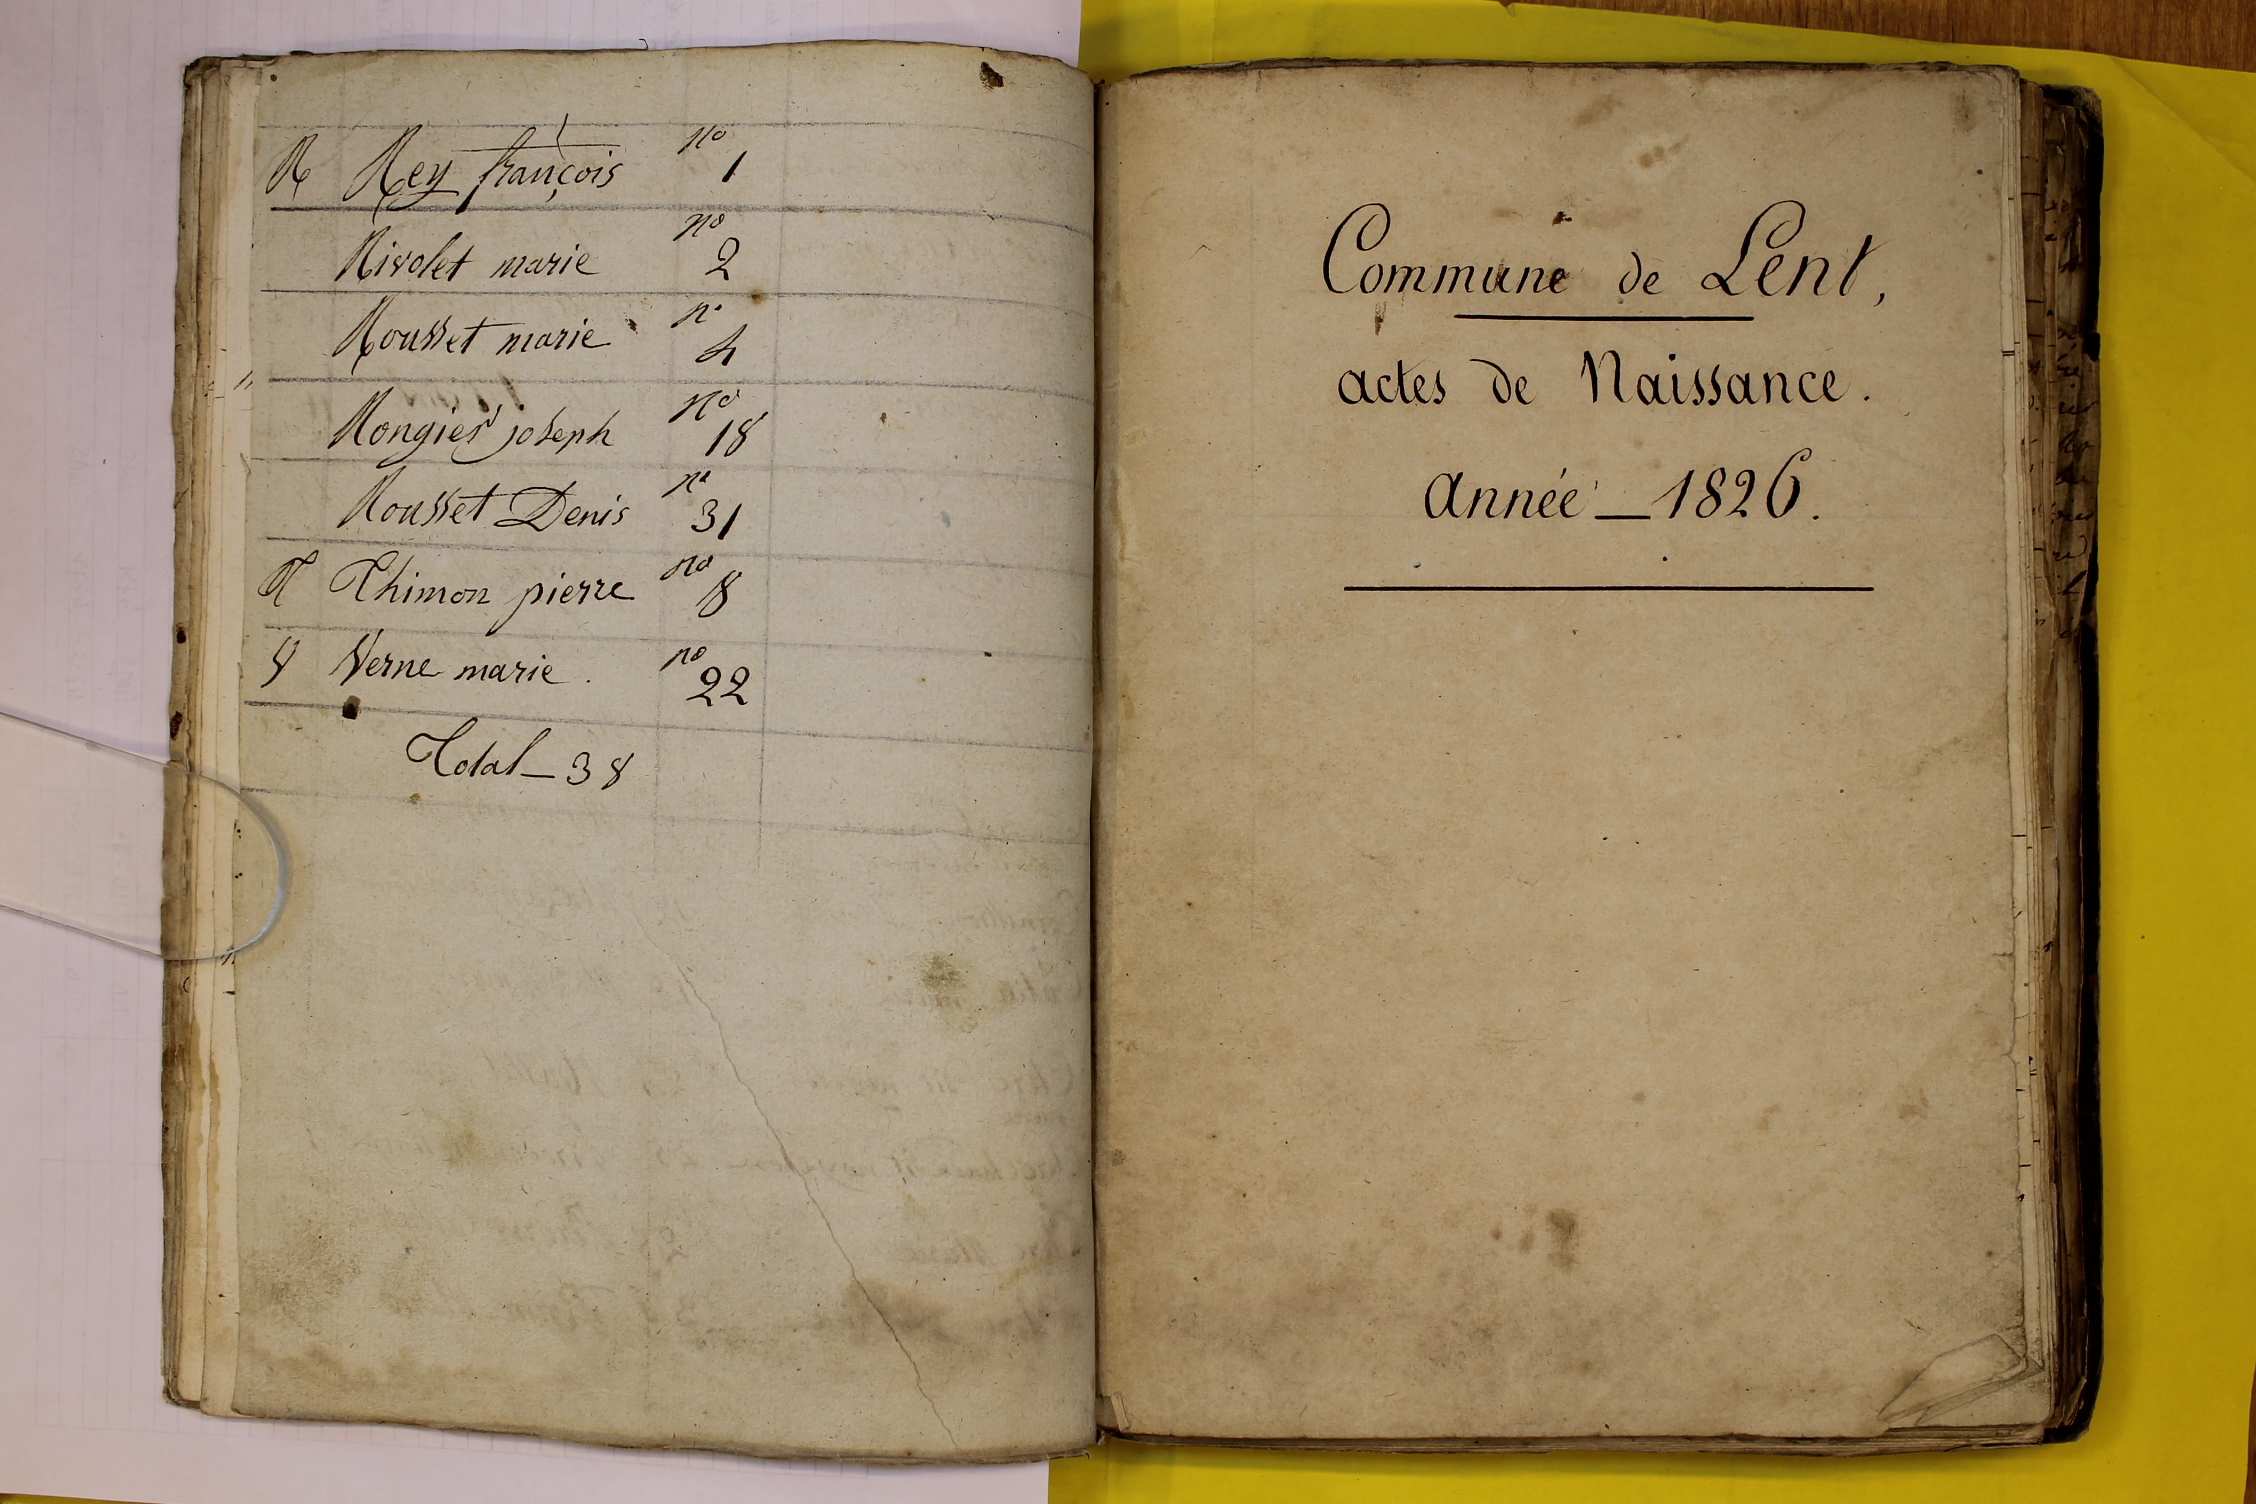 R Rey françois no 1
Rivolet marie no 2
Rousset marie no 4
Rongier joseph no 18
Rousset Denis no 31
T Thimon pierre no 8
V Verne marie. no 22
Total_38
Commune de Lent,
actes de Naissance.
année_1826.